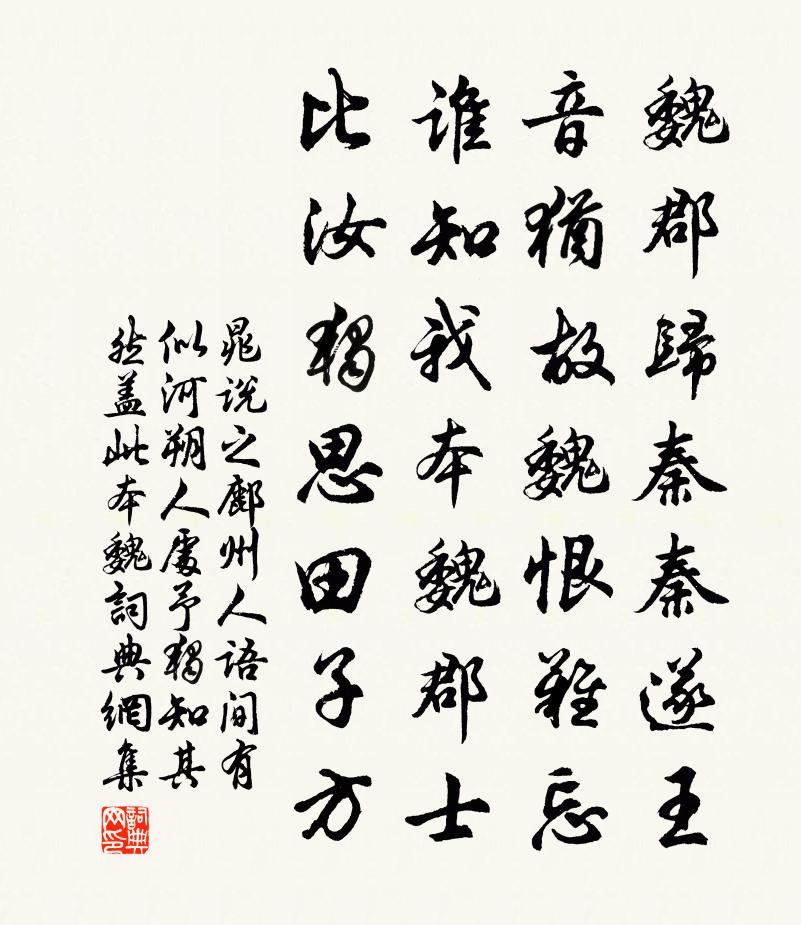 魏郡歸秦秦遂王
音猶故魏恨難忘
誰知我本魏郡士
比汝獨思田子方
晁說之鄜州人語間有
似河朔人處予獨知其
然蓋此本魏詞典網集
詞典
网印